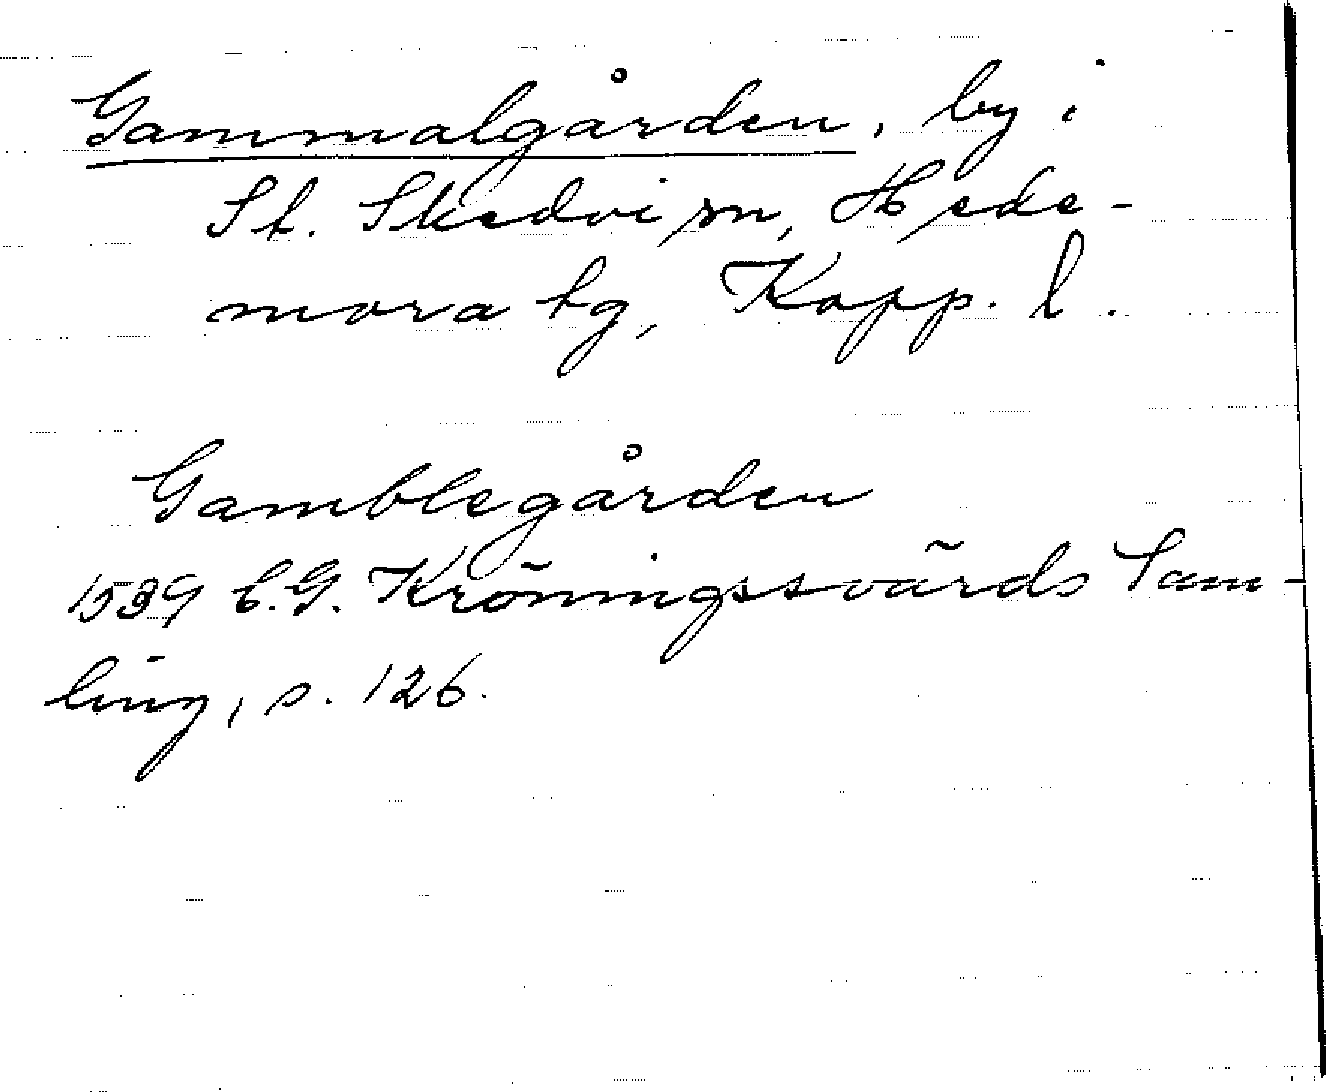 Gammalgården, by i
St. Skedvi sn, Hede-
mora tg, Kopp. l.
Gamblegården
1539 C.G. Kröningssvärds Sam-
ling, s. 126.